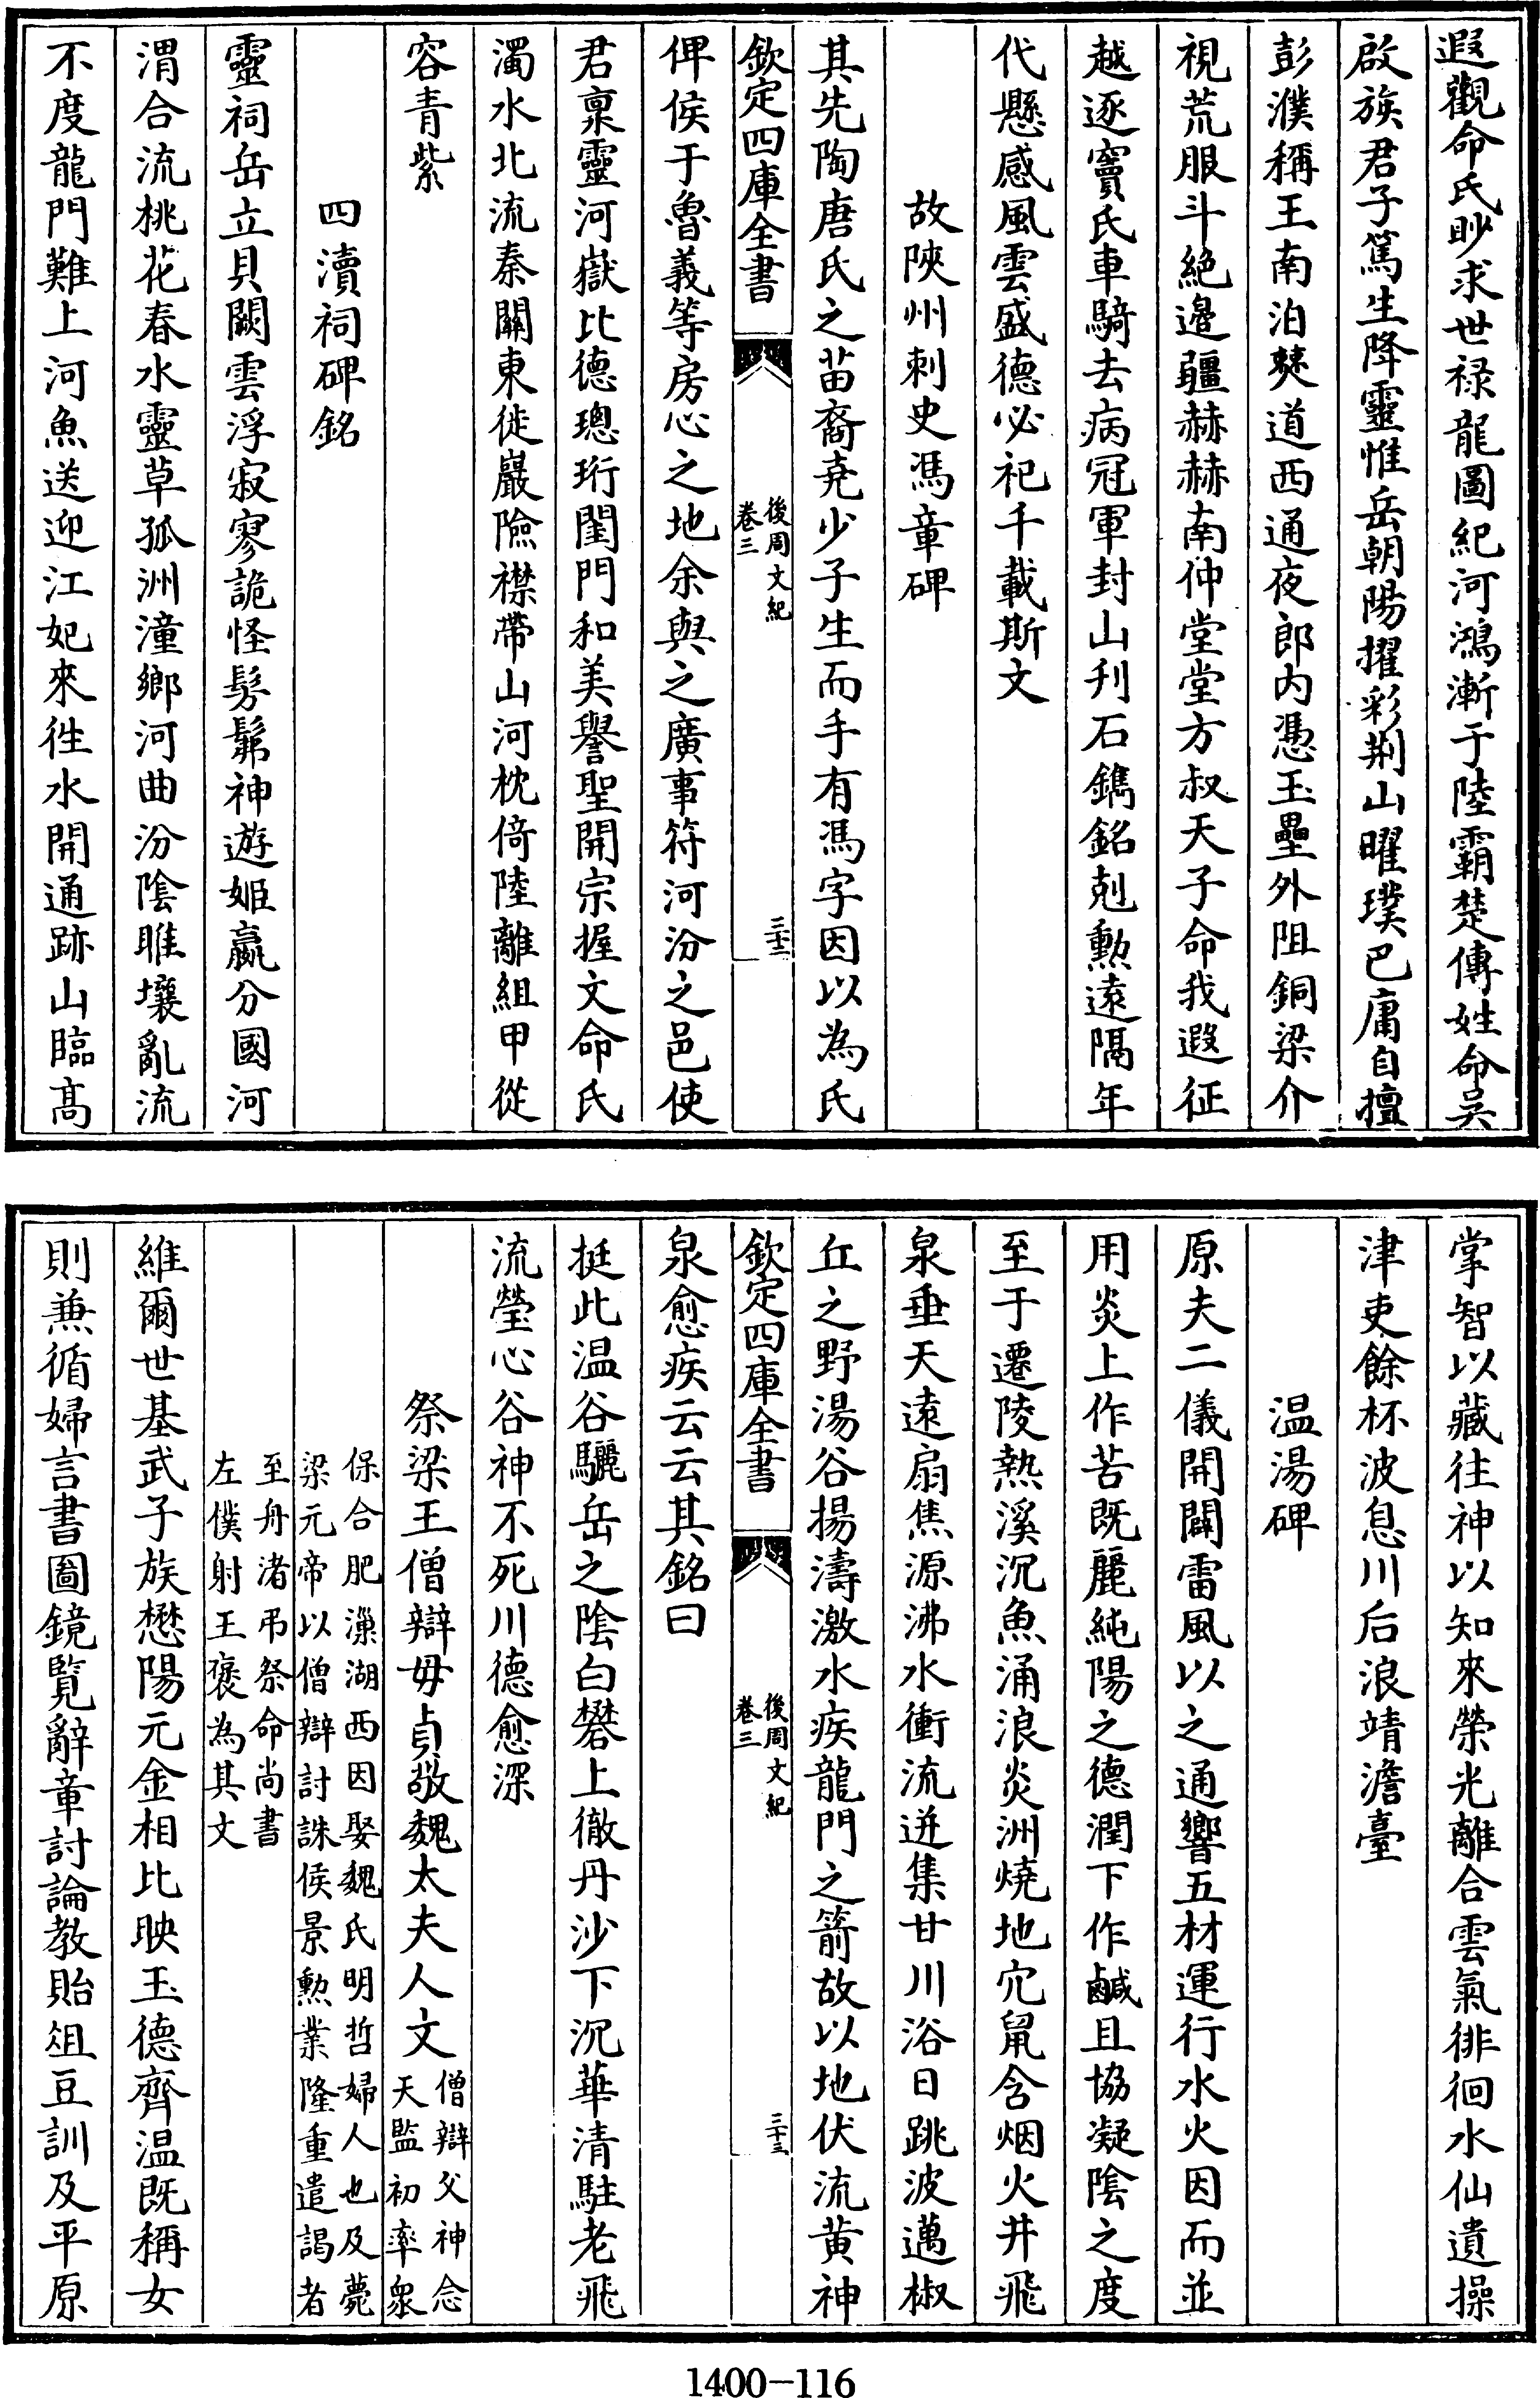 遐觀命氏眇求世禄龍圖紀河鴻漸于陸霸楚傳姓命吳
啟族君子篤生降靈惟岳朝陽擢彩荆山曜璞巴庸自擅
彭濮稱王南泊僰道西通夜郎内憑玉壘外阻銅梁介
視荒服斗絶邉疆赫赫南仲堂堂方叔天子命我遐征
越逐竇氏車騎去病冠軍封山刋石鐫銘剋勲遠隔年
代懸感風雲盛德必祀千載斯文
故陜州刺史馮章碑
其先陶唐氏之苗裔堯少子生而手有馮字因以為氏
欽定四庫全書
後周文紀
卷三
三十二
俾侯于魯義等房心之地余與之廣事符河汾之邑使
君稟靈河嶽比德璁珩閨門和美譽聖開宗握文命氏
濁水北流秦關東徙巖險襟帶山河枕倚陸離組甲從
容青紫
四瀆祠碑銘
靈祠岳立貝闕雲浮寂寥詭怪髣髴神遊姬嬴分國河
渭合流桃花春水靈草孤洲潼鄉河曲汾隂睢壤亂流
不度龍門難上河魚送迎江妃來徃水開通跡山臨髙
掌智以藏往神以知來榮光離合雲氣徘徊水仙遺操
津吏餘杯波息川后浪靖澹臺
温湯碑
原夫二儀開闢雷風以之通響五材運行水火因而並
用炎上作苦既麗純陽之德潤下作鹹且協凝隂之度
至于遷陵熱溪沉魚涌浪炎洲燒地穴鼠含烟火井飛
泉垂天遠扇焦源沸水衝流迸集甘川浴日跳波邁椒
丘之野湯谷揚濤激水疾龍門之箭故以地伏流黄神
欽定四庫全書
後周文紀
卷三
三十三
泉愈疾云云其銘曰
挺此温谷驪岳之隂白礬上徹丹沙下沉華清駐老飛
流瑩心谷神不死川德愈深
祭梁王僧辯母貞敬魏太夫人文
僧辯父神念
天監初率衆
保合肥漅湖西因娶魏氏明哲婦人也及薨
梁元帝以僧辯討誅侯景勲業隆重遣謁者
至舟渚弔祭命尚書
左僕射王褒為其文
維爾世基武子族懋陽元金相比映玉德齊温既稱女
則兼循婦言書圖鏡覽辭章討論教貽俎豆訓及平原
1400-116